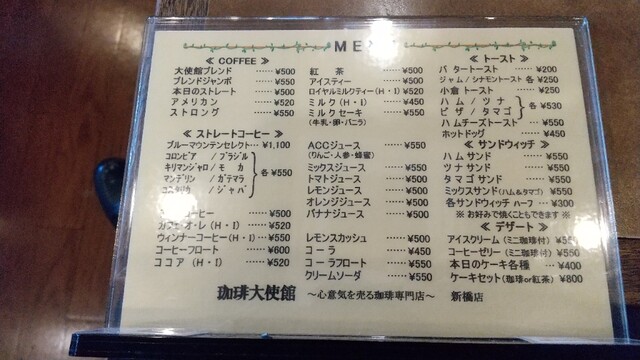 ME
≪ COFFEE ≫
大使館ブレンド ……¥500
ブレンドジャンボ ……¥550
本日のストレート ……¥500
アメリカン ……¥520
ストロング ……¥550
≪ ストレートコーヒー ≫
ブルーマウンテンセレクト…¥1,100
コロンビア / ブラジル
キリマンジャロ / モカ
マンデリン / ガテマラ
コスタリカ / ジャバ
各 ¥550
コーヒー ……¥500
カフェ・オ・レ (H・I) ……¥520
ウィンナーコーヒー (H・I) …¥550
コーヒーフロート ……¥600
ココア (H・I) ……¥520
紅茶 ……¥500
アイスティー ……¥500
ロイヤルミルクティー (H・I) ……¥520
ミルク (H・I) ……¥450
ミルクセーキ ……¥550
(牛乳・卵・バニラ)
ACCジュース ……¥550
(りんご・人参・蜂蜜)
ミックスジュース ……¥550
トマトジュース ……¥500
レモンジュース ……¥500
オレンジジュース ……¥500
バナナジュース ……¥500
レモンスカッシュ ……¥500
コーラ ……¥450
コーラフロート ……¥550
クリームソーダ ……¥550
≪ トースト ≫
バタートースト ……¥200
ジャム / シナモントースト 各 ¥250
小倉トースト ……¥250
ハム / ツナ
ピザ / タマゴ
各 ¥530
ハムチーズトースト ……¥550
ホットドッグ ……¥450
≪ サンドウィッチ ≫
ハムサンド ……¥550
ツナサンド ……¥550
タマゴサンド ……¥550
ミックスサンド (ハム&タマゴ) ¥550
各サンドウィッチ ハーフ …¥300
※ お好みで焼くこともできます ※
≪ デザート ≫
アイスクリーム (ミニ珈琲付) ¥550
コーヒーゼリー (ミニ珈琲付) ¥550
本日のケーキ各種 …¥400
ケーキセット (珈琲or紅茶) ¥800
珈琲大使館 ～心意気を売る珈琲専門店～ 新橋店